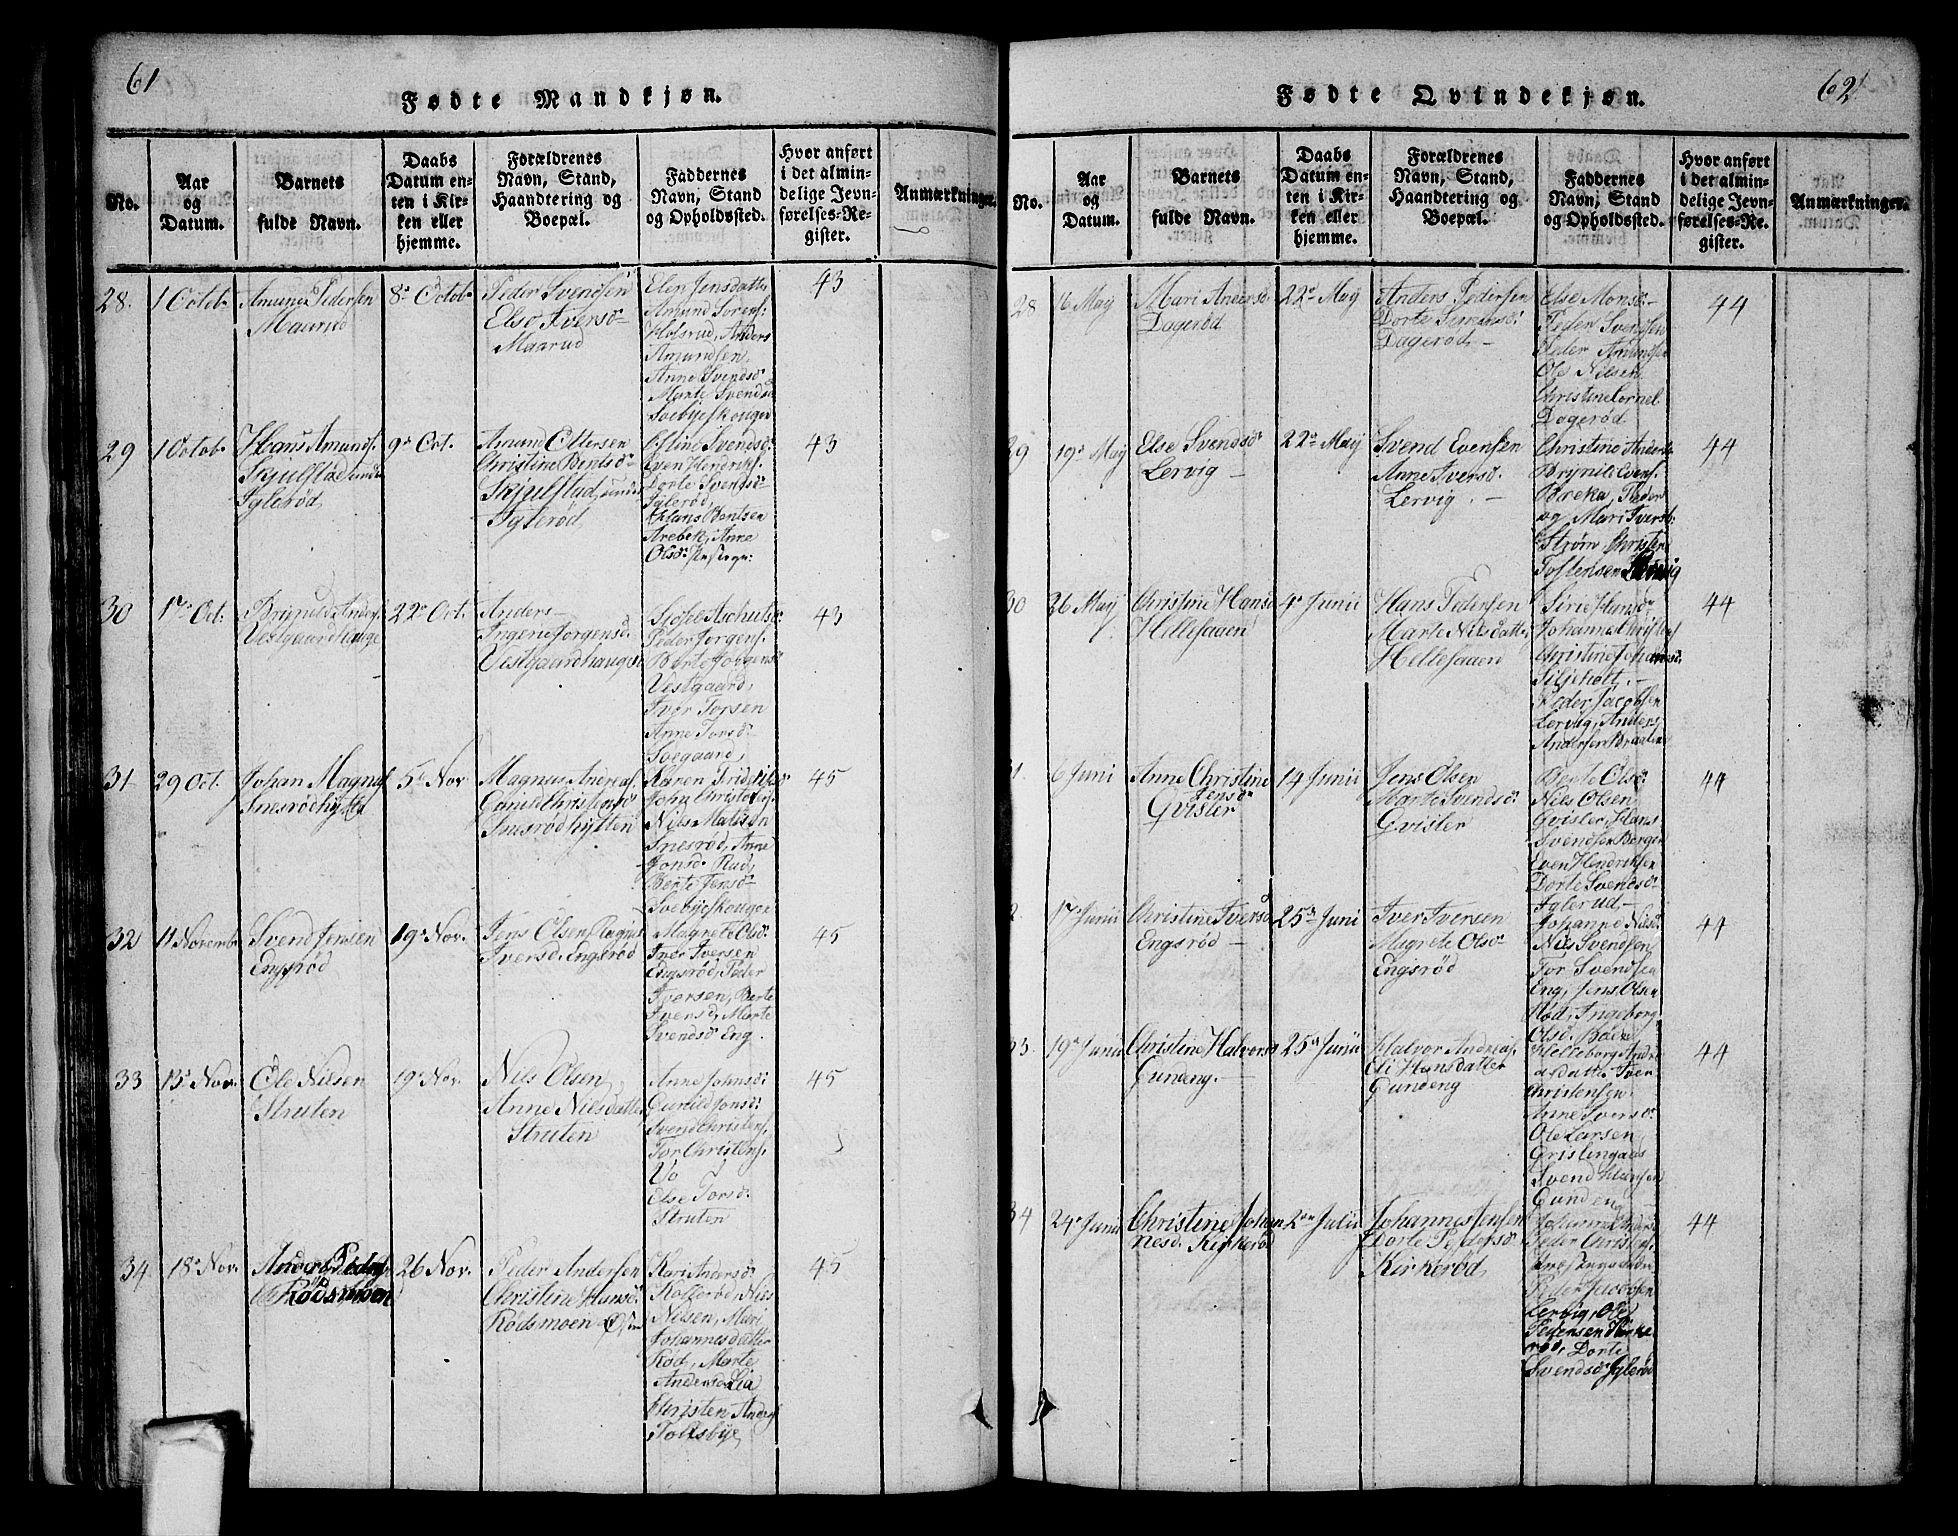 61
Fødte Mandkjøn.
No.
Aar
og
Datum.
Barnets
fulde Navn.
Daabs
Datum en-
ten i Kir-
ken eller
hjemme.
Forældrenes
Navn, Stand,
Haandtering og
Boepæl.
Faddernes
Navn, Stand
og Opholdsted.
Hvor anført
i det almin-
delige Jevn-
førelses-Re-
gister.
Anmærkninger.
28.
1 Octob
Pedersen
Maarud
8de Octob
Peder Svendsen
Else Iversd
Maarud
Elen Jensdatter
Amund Sørens.
Holsrud, Anders
Amundsen
Anne Svendsd
Marte Svendsd
Soebyeskougen
43
29
1 Octob
Hans Amunds.
Skjulstad under
Iglerød
9de Oct.
Amund Ottersen
Christine Bentsd
Skjulstad, under
Iglerød
Svendsd
Even Hendriks.
Dorte Svendsd
Iglerød,
Hans Bentsen
Arebek, Anne
Olsd
43
30
17de Oct:
Brynild Anders.
Vestgaardhauge
22de Oct.
Anders
Ingerie Jørgensd.
Vestgaardhauge
Peder Jørgens.
Berte Jørgensd
Vestgaard,
Iver Torsen
Anne Torsd
Soegaard,
43
31
29 Oct.
Johan Magnus
Snesrødhytta
5te Nov
Magnus Andreas.
Gunild Christensd
Snesrødhytten
Karen Friderik
John Christens.
Niels Madsen
Snesrød, Anne
Jonsd. Rud,
Berte Jensd
Soebyeskougen
45
32
11 Novemb
Svend Jensen
Engsrød
19de Nov.
Jens Olsen Ragne
Iversd. Engsrød
Magrete Olsd.
Iver Iversen
Engsrød, Peder
Iversen, Berte
Iversd, Marte
Svendsd Eng.
45
33
15de Nov.
Ole Nilsen
Struten
19de Nov.
Nils Olsen,
Anne Nilsdatter
Struten
Anne Johnsd.
Gunild Jonsd.
Svend Christens.
Tor Christens.
Vo
Else Torsd.
Struten
45
34
18de Nov.
Anders Peders
Rødsmoen
26 Nov.
Peder Andersen
Christine Hansd.
Rødsmoen
Kari Andersd.
Kollerød, Niels
Nilsen, Mari
Johannesdatter
Rød, Marte
Andersd. Lia
Christen Anders
Tolksbye
45
62
Fødte Qvindekjøn.
No.
Aar
og
Datum.
Barnets
fulde Navn.
Daabs
Datum en-
ten i Kir-
ken eller
hjemme.
Forældrenes
Navn, Stand,
Haandtering og
Boepæl.
Faddernes
Navn, Stand
og Opholdssted.
Hvor anført
i det almin-
delige Jevn-
førelses-Re-
gister.
Anmærkninger.
28
6 May
Mari Andersd.
Dagerød
22de May
Anders Pedersen
Dorte Simensd.
Dagerød.
Else Monsd
Peder Svendsen
Peder Amundsen
Ole Nilsen
Christine Cornel
Dagerød.
44
29
19de May
Else Svendsd
Lervig
22de May
Svend Evensen
Anne Iversd.
Lervig.
Christine Anders
Brynild Evens.
Bækka, Peder
og Mari Iversd.
Strøm Christen
Tostensen Lervig
44
30
26 May
Christine Hansd
Hillesaaen
4de Junii
Hans Pedersen
Marte Nilsdatter
Hillesaaen
Sirie Hansd
Johannes Christens
Christine Johannesd.
Siljeholt.
Peder Jacobsen
Lervig, Anders
Andersen Braaten
44
1
6 Juni
Anne Christine
Jensd
Qvisler
14 Junii
Jens Olsen
Marte Svendsd.
Qvisler
Berte Olsd
Niels Olsen
Qvisler, Hans
Svendsen Borgen
Even Hendriksen
Dorte Svendsd
Iglerud
44
2
17de Junii
Christine Iversd
Engsrød
25de Juni
Iver Iversen
Magrete Olsd
Engsrød
Johanne Nilsd.
Nils Svendsen
Tor Svendsen
Eng, Jens Olsen
Rød, Ingeborg
Olsd. Bække
44
33
19de Junii
Christine Halvorsd
Gundeng.
25de Junii
Halvor Andreas.
Eli Hansdatter
Gundeng
Helleborg Andre
asdatter Iver
Christensen
Anne Iversd
Ole Larsen
Grislingaas
Svend Hansen
Gundeng
44
34
24de Junii
Christine Johan
nesd. Kirkerød
2den Julii
Johannes Jensen
Dorte Pedersd
Kirkerød
Peder Christens.
Peder Jacobsen
Lervig, Ole
Pedersen Kirke
rød, Dorte
Svendsd Iglerød
44